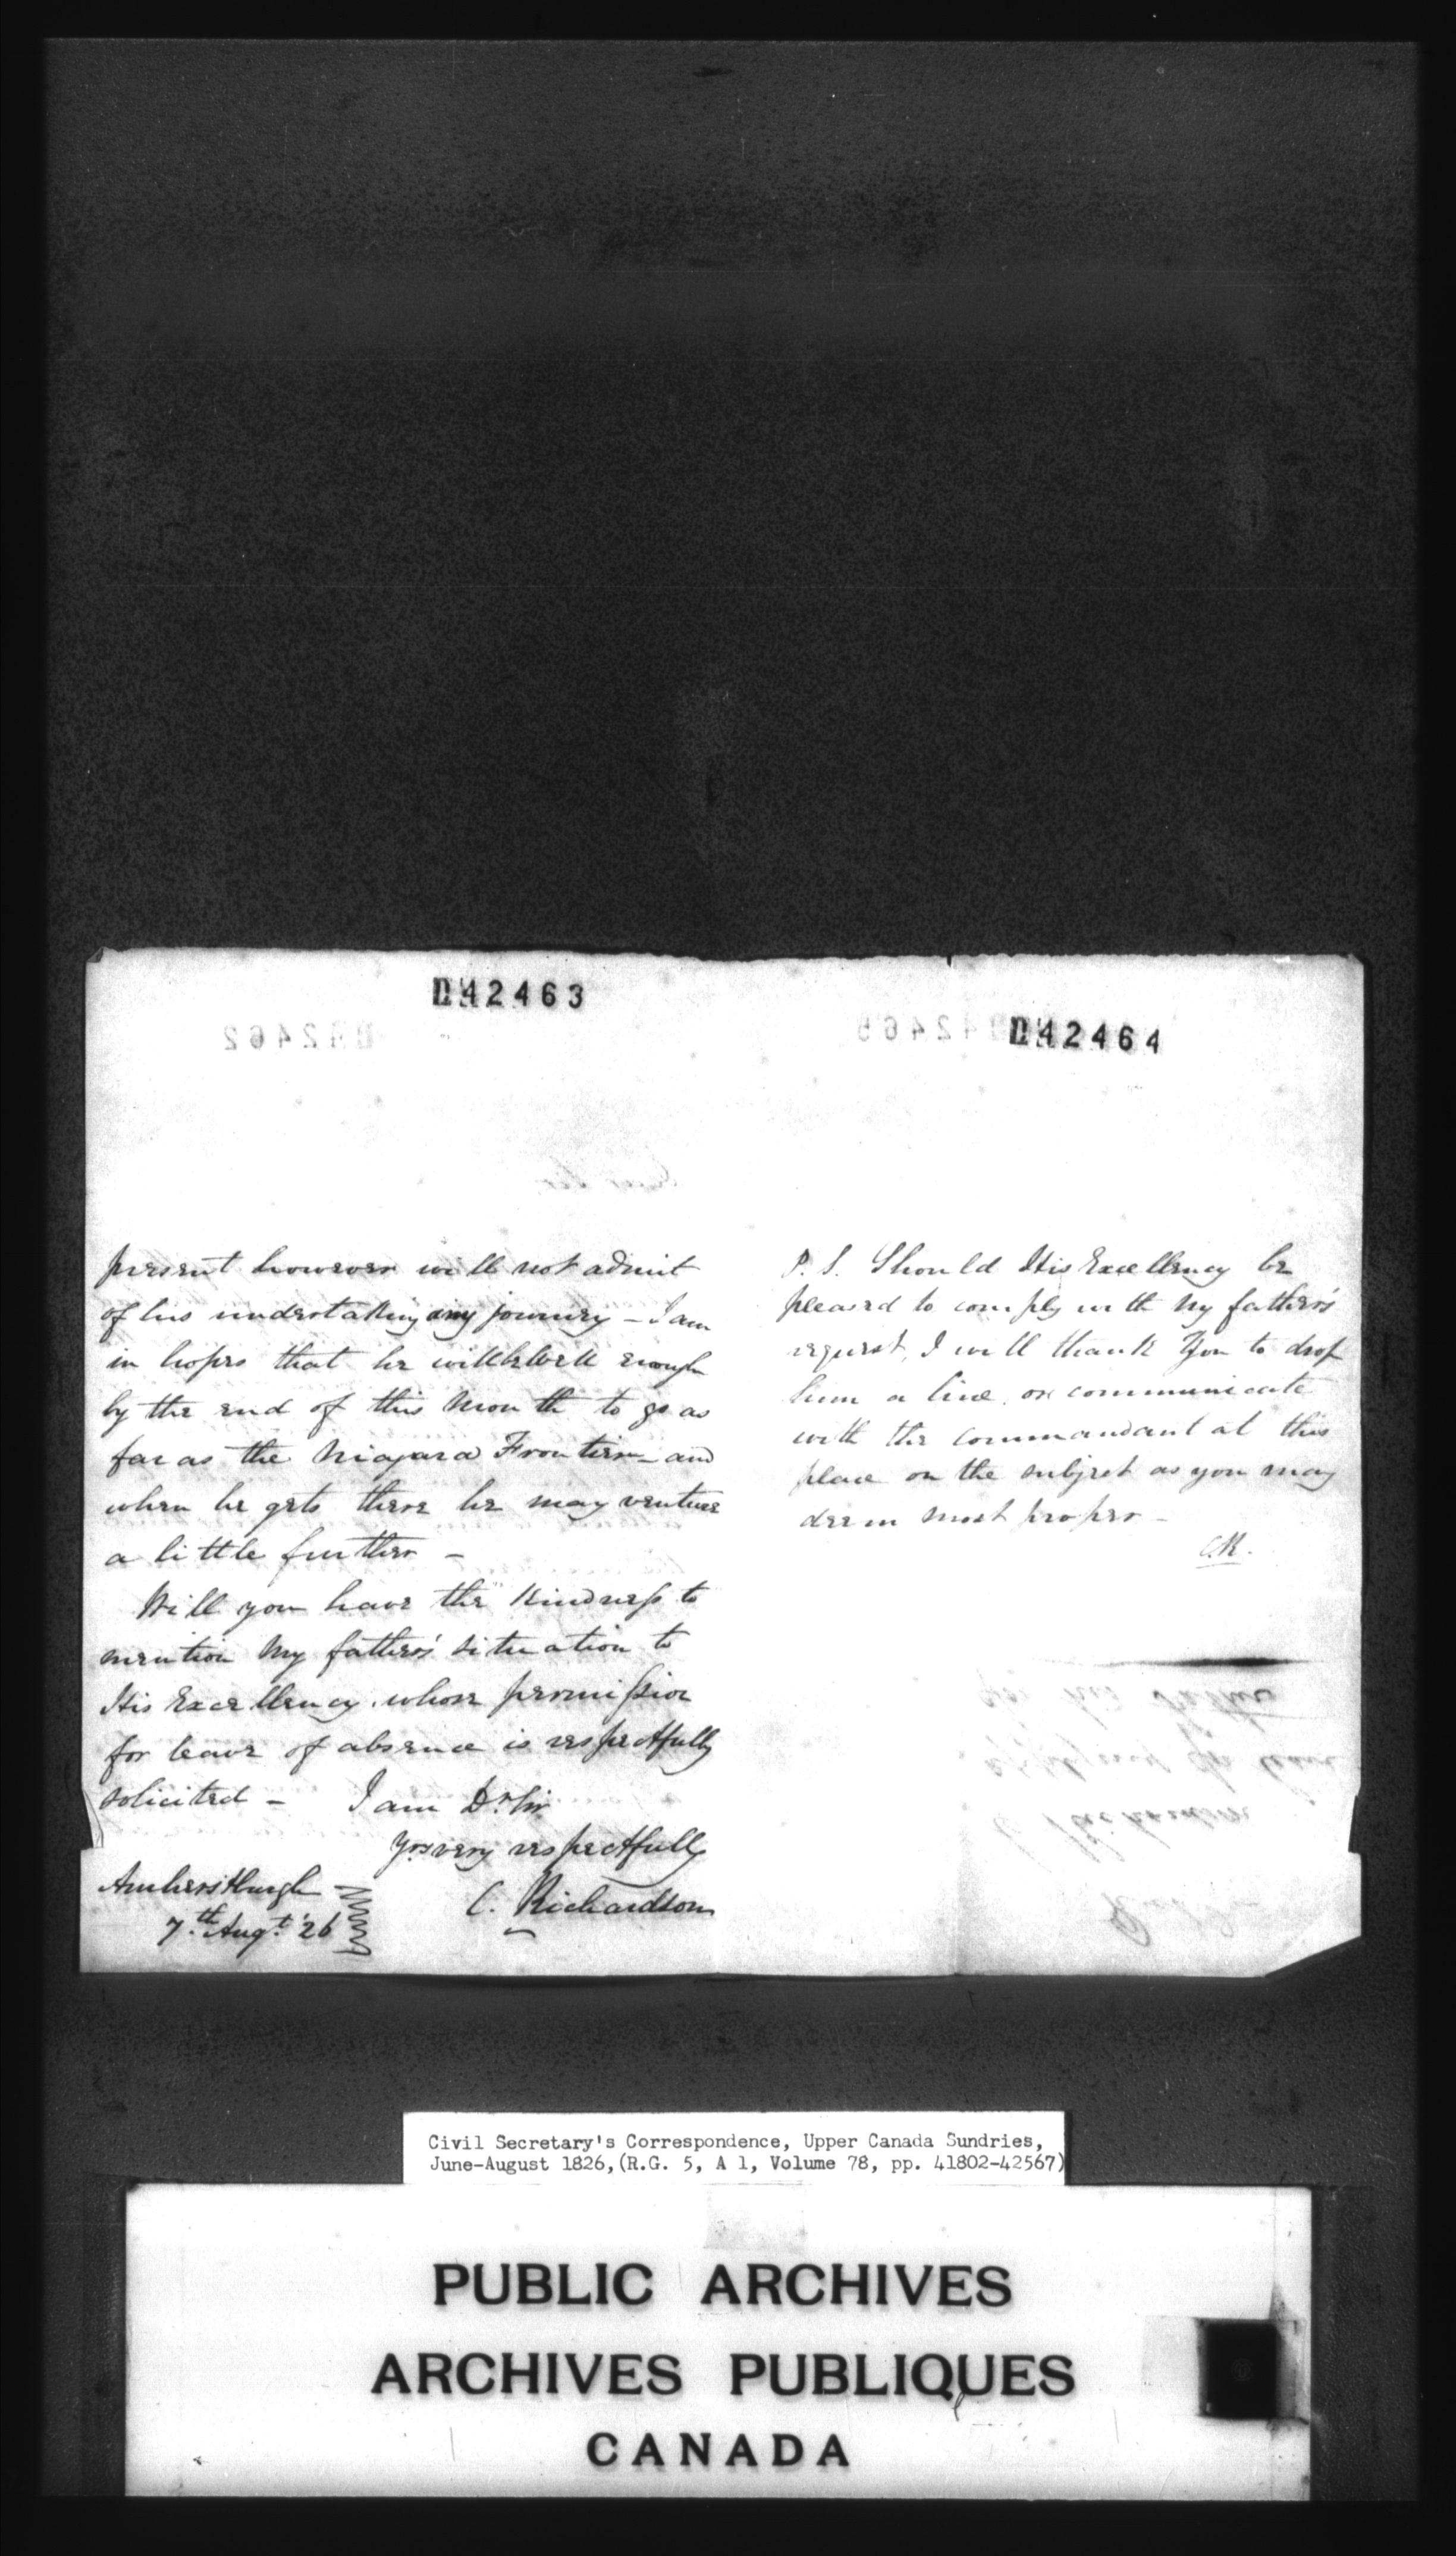 042463
042464
present however will not admit
of his undertaking any journey – I am
in hopes that he will be well enough
by the end of this Month to go as
far as the Niagara Frontier – and
when he gets there he may venture
a little further –
Will you have the Kindness to
mention My father's situation to
His Excellency, whose permission
for leave of absence is respectfully
solicited – I am Dr Sir
Yrs very respectfully
C. Richardson
Amherstburgh
7th Augt '26
P. S. Should His Excellency be
pleased to comply with My father's
request, I will thank You to drop
him a line, or communicate
with the commandant at this
place on the subject as you may
deem most proper –
C.R.
Civil Secretary's Correspondence, Upper Canada Sundries,
June-August 1826, (R.G. 5, A 1, Volume 78, pp. 41802-42567)
PUBLIC ARCHIVES
ARCHIVES PUBLIQUES
CANADA